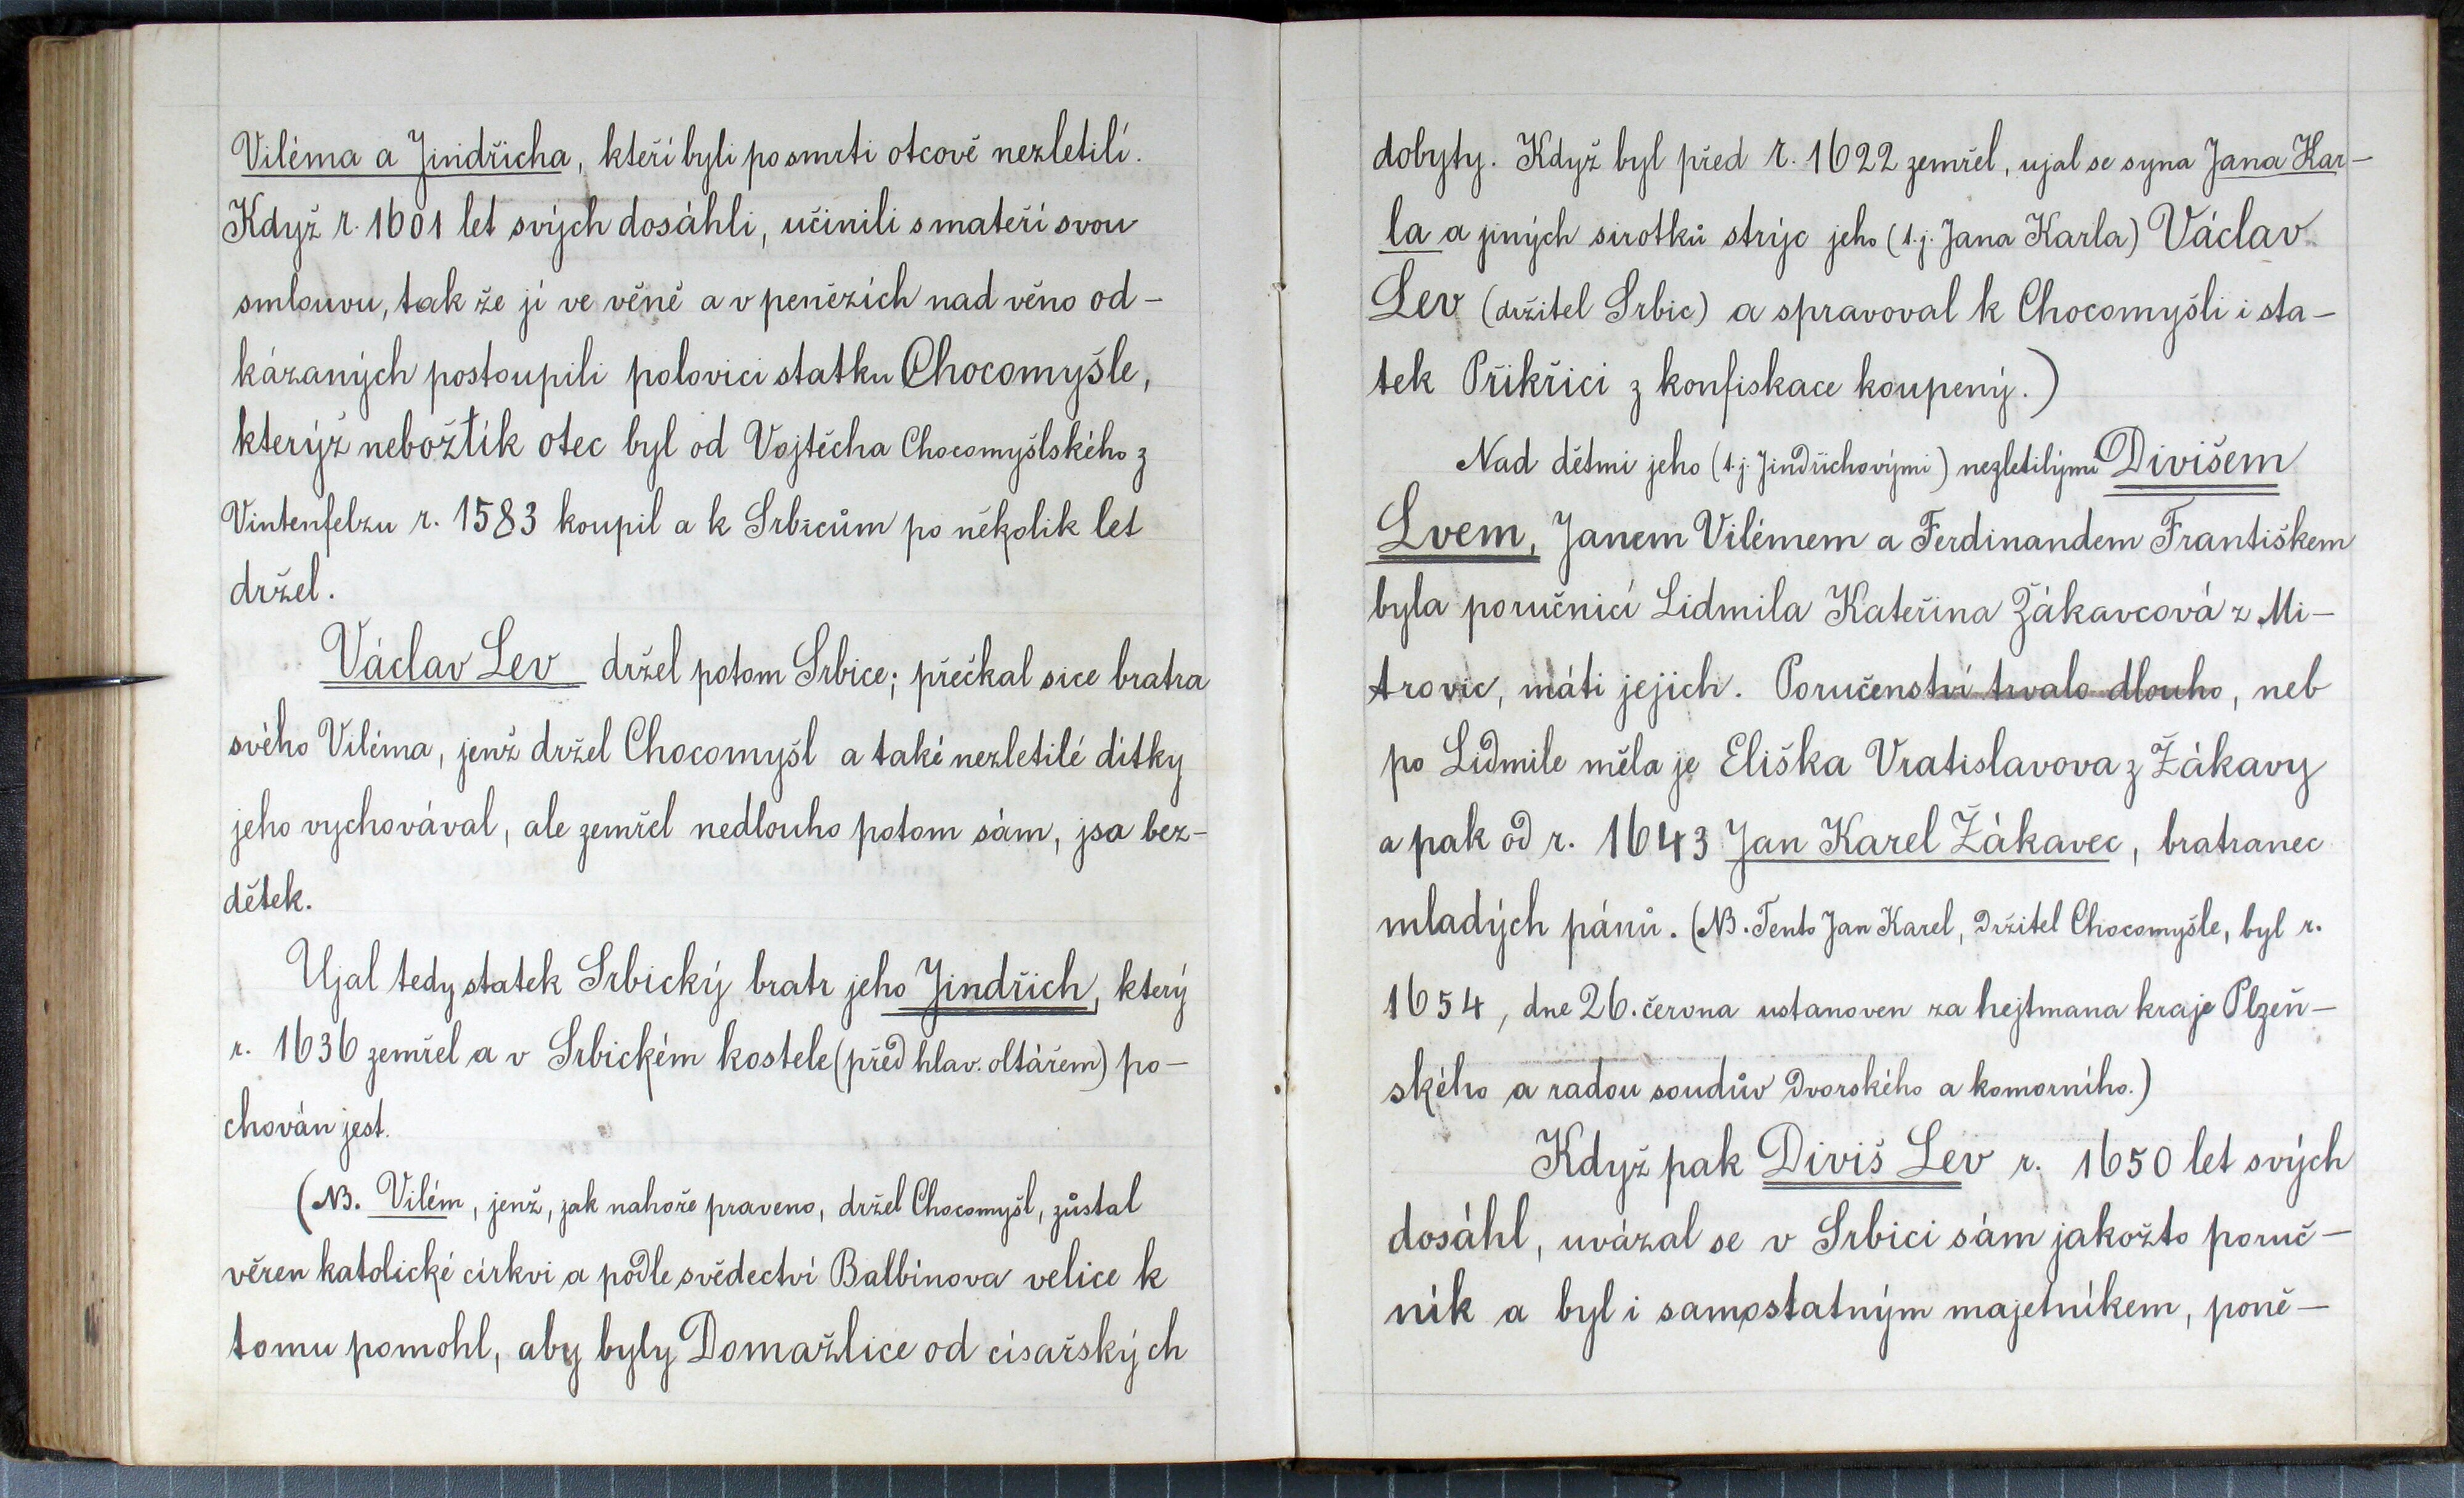 Viléma a Jindřicha, kteří byli po smrti otcově nezletilí.
Když r. 1601 let svých dosáhli, učinili s mateří svou
smlouvu, tak že jí ve věně a v penězích nad věno od-
kázaných postoupili polovici statku Chocomyšle,
kterýž nebožtík otec byl od Vojtěcha Chocomyšlského z
Vintenfelzu r. 1583 koupil a k Srbicům po několik let
držel.
Václav Lev držel potom Srbice; přečkal sice bratra
svého Viléma, jenž držel Chocomyšl a také nezletilé dítky
jeho vychovával, ale zemřel nedlouho potom sám, jsa bez-
dětek.
Ujal tedy statek Srbický bratr jeho Jindřich, který
r. 1636 zemřel a v Srbickém kostele (před hlav. oltářem) po-
chován jest.
(NB. Vilém, jenž, jak nahoře praveno, držel Chocomyšl, zůstal
věren katolické církvi a podle svědectví Balbínova velice k
tomu pomohl, aby byly Domažlice od císařských
dobyty. Když byl před r. 1622 zemřel, ujal se syna Jana Kar-
la a jiných sirotků strýc jeho (t.j. Jana Karla) Václav
Lev (držitel Srbic) a spravoval k Chocomyšli i sta-
tek Přikřici z konfiskace koupený.)
Nad dětmi jeho (t.j. Jindřichovými) nezletilými Divišem
Lvem, Janem Vilémem a Ferdinandem Františkem
byla poručnicí Lidmila Kateřina Žákavcová z Mi-
trovic, máti jejich. Poručenství trvalo dlouho, neb
po Lidmile měla je Eliška Vratislavova z Žákavy
a pak od r. 1643 Jan Karel Žákavec, bratranec
mladých pánů. (NB. Tento Jan Karel, držitel Chocomyšle, byl r.
1654, dne 26. června ustanoven za hejtmana kraje Plzeň-
ského a radou soudův dvorského a komorního.)
Když pak Diviš Lev r. 1650 let svých
dosáhl, uvázal se v Srbici sám jakožto poruč-
ník a byl i samostatným majetníkem, poně-